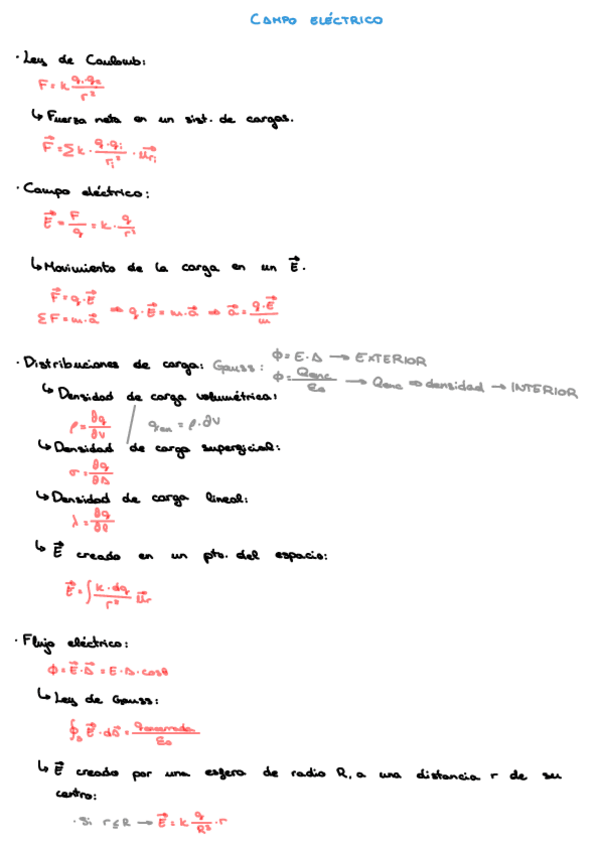 CAMPO ELÉCTRICO
· Ley de Coulomb:
F = k q·q₂/r²
↳ Fuerza neta en un sist. de cargas.
F⃗ = Σ k · q·qᵢ/rᵢ² · u⃗rᵢ
· Campo eléctrico:
E⃗ = F/q = k · q/r²
↳ Movimiento de la carga en un E⃗.
F⃗ = q·E⃗
ΣF = m·a⃗ ⇒ q·E⃗ = m·a⃗ ⇒ a⃗ = q·E⃗/m
· Distribuciones de carga: Gauss: Φ = E·Δ → EXTERIOR
Φ = Qenc/ε₀ → Qenc ⇒ densidad → INTERIOR
↳ Densidad de carga volumétrica:
ρ = ∂q/∂V / qen = ρ·∂V
↳ Densidad de carga superficial:
σ = ∂q/∂Δ
↳ Densidad de carga lineal:
λ = ∂q/∂l
↳ E⃗ creado en un pto. del espacio:
E⃗ = ∫ k·dq/r² u⃗r
· Flujo eléctrico:
Φ = E⃗·Δ⃗ = E·Δ·cosθ
↳ Ley de Gauss:
∮s E⃗·ds⃗ = qencerrada/ε₀
↳ E⃗ creado por una esfera de radio R, a una distancia r de su
centro:
· Si r≤R → E⃗ = k q/R³ · r